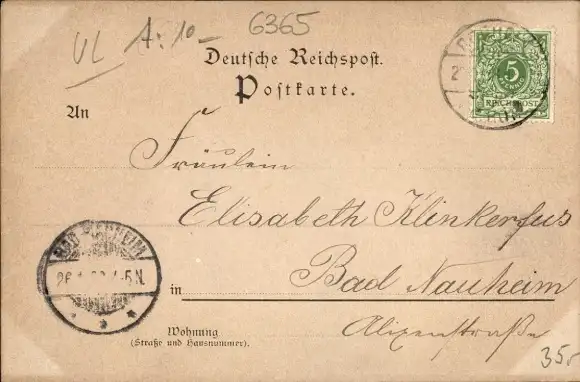 VL A: 10-
6365
Deutsche Reichspost.
Postkarte.
5
PFENNIG
REICHSPOST
An
Fräulein
Elisabeth Klinkerfus
in Bad Nauheim
Alizenstraße
BAD NAUHEIM
4-5N.
Wohnung
(Straße und Hausnummer).
35,-